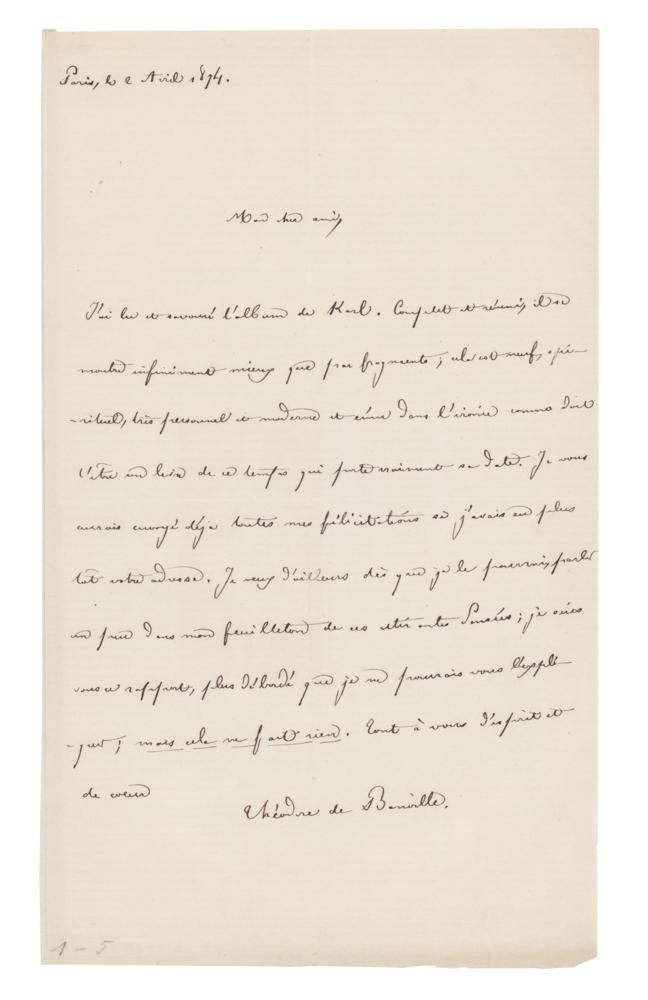 Paris, le 2 Avril 1874.
Mon cher ami,
J'ai lu et savouré l'album de Karl. Complet et réuni, il se
montre infiniment mieux que par fragments ; cela est neuf, spi-
-rituel, très personnel et moderne et dans l'ironie comme doit
l'être un livre de ce temps qui porte vraiment sa date. Je vous
aurais envoyé déjà toutes mes félicitations si j'avais eu plus
tôt votre adresse. Je veux d'ailleurs dès que je le pourrai, parler
un peu dans mon feuilleton de ces Pensées ; je suis
sous ce rapport, plus débordé que je ne pourrais vous l'expli-
-quer ; mais cela ne fait rien. Tout à vous d'esprit et
de cœur
Théodore de Banville.
1 - 5